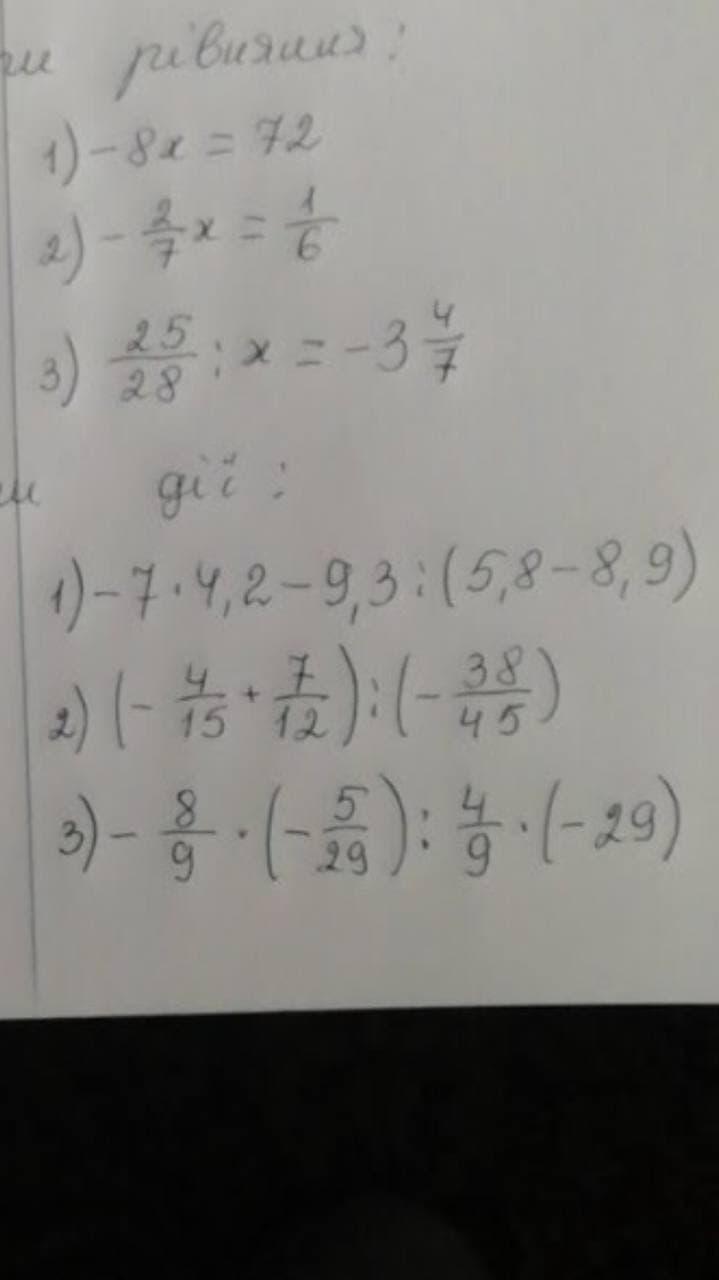 рівняння:
1) -8x = 72
2) -2/7 x = 1/6
3) 25/28 : x = -3 4/7
дії:
1) -7·4,2-9,3:(5,8-8,9)
2) (-4/15 + 7/12):(-38/45)
3) -8/9·(-5/29):4/9·(-29)